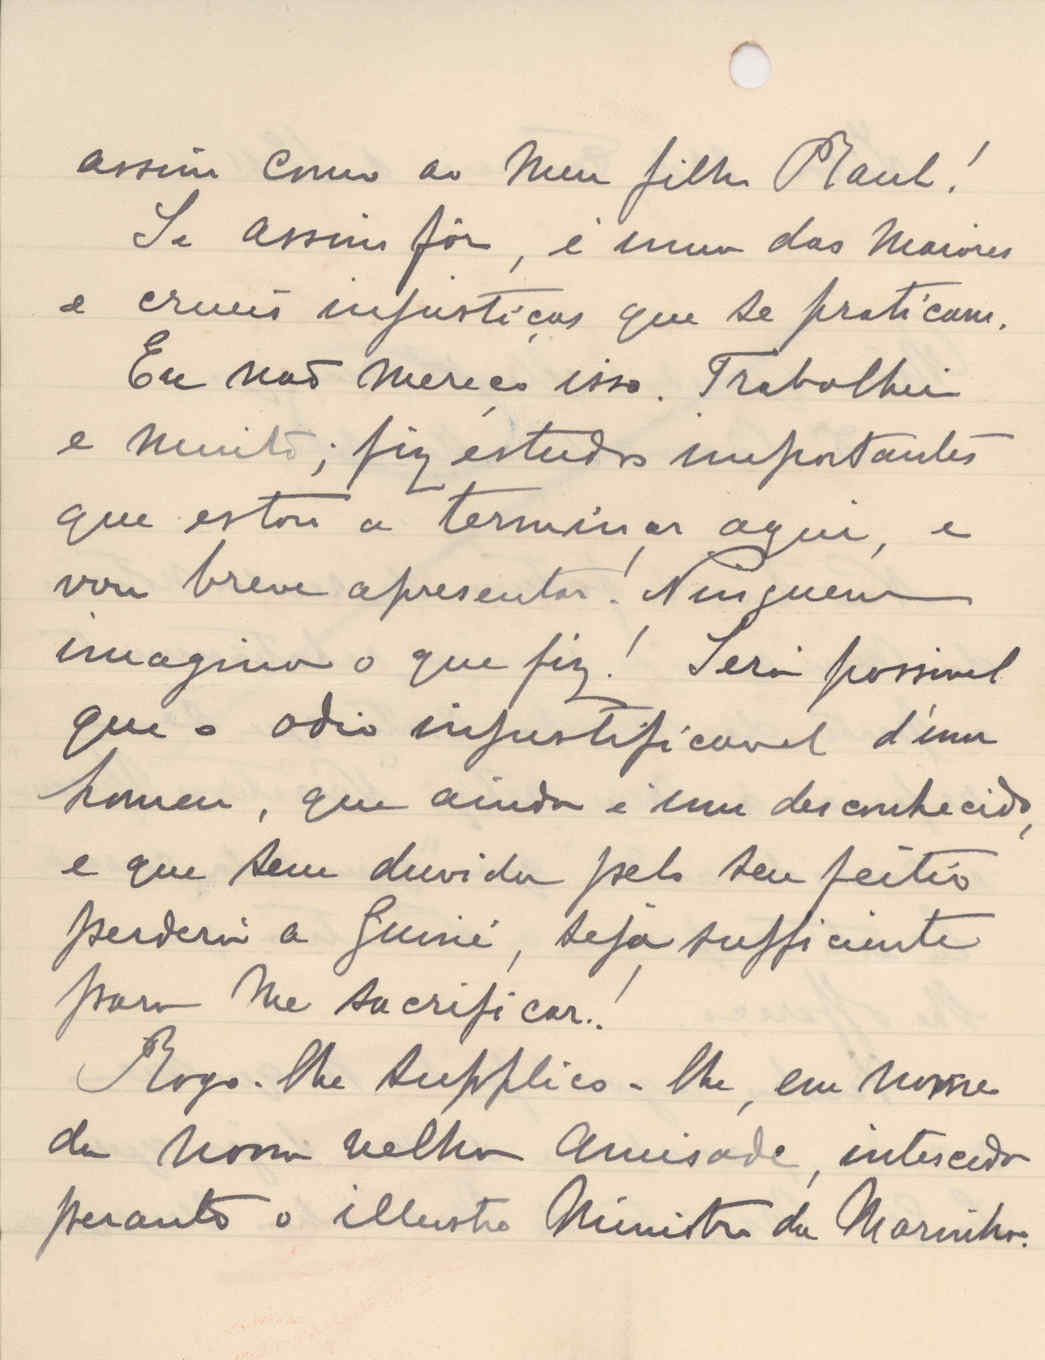 assim como ao meu filho Raul!
Se assim fôr, é uma das maiores
e crueis injustiças que se praticam.
Eu não mereço isso. Trabalhei
e muito; fiz estudos importantes
que estou a terminar aqui, e
vou breve apresentar. Ninguem
imagina o que fiz! Será possivel
que o odio injustificavel d'um
homem, que ainda é um desconhecido,
e que sem duvida pelo seu feitio
perderá a Guiné, seja sufficiente
para me sacrificar.!
Rogo-lhe supplico-lhe, em nome
da nossa velha amisade, interceda
perante o illustre Ministro da Marinha.